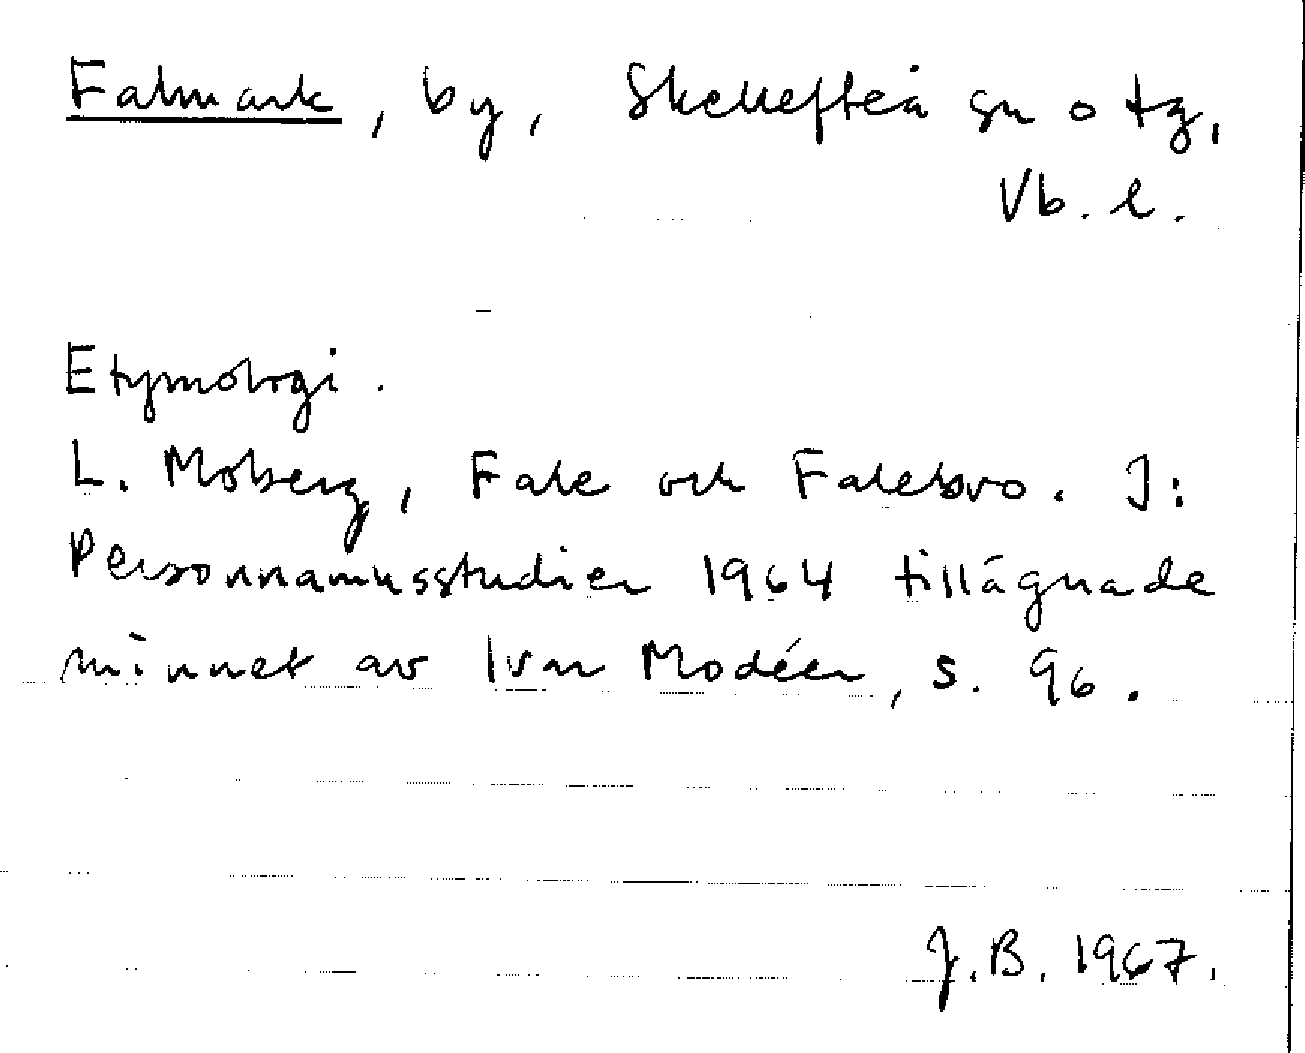 Falmark, by, Skellefteå sn o tg,
Vb. l.
Etymologi.
L. Moberg, Fale och Falebro. I:
Personnamnsstudier 1964 tillägnade
minnet av Ivar Modéer, s. 96.
J.B. 1967.